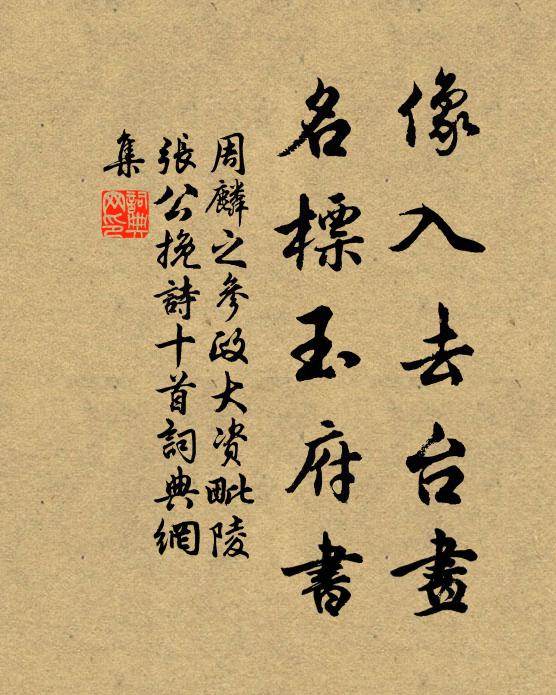 像入去台畫
名標玉府書
周麟之參政大资毗陵
張公挽詩十首詞典網
集
詞典
网印